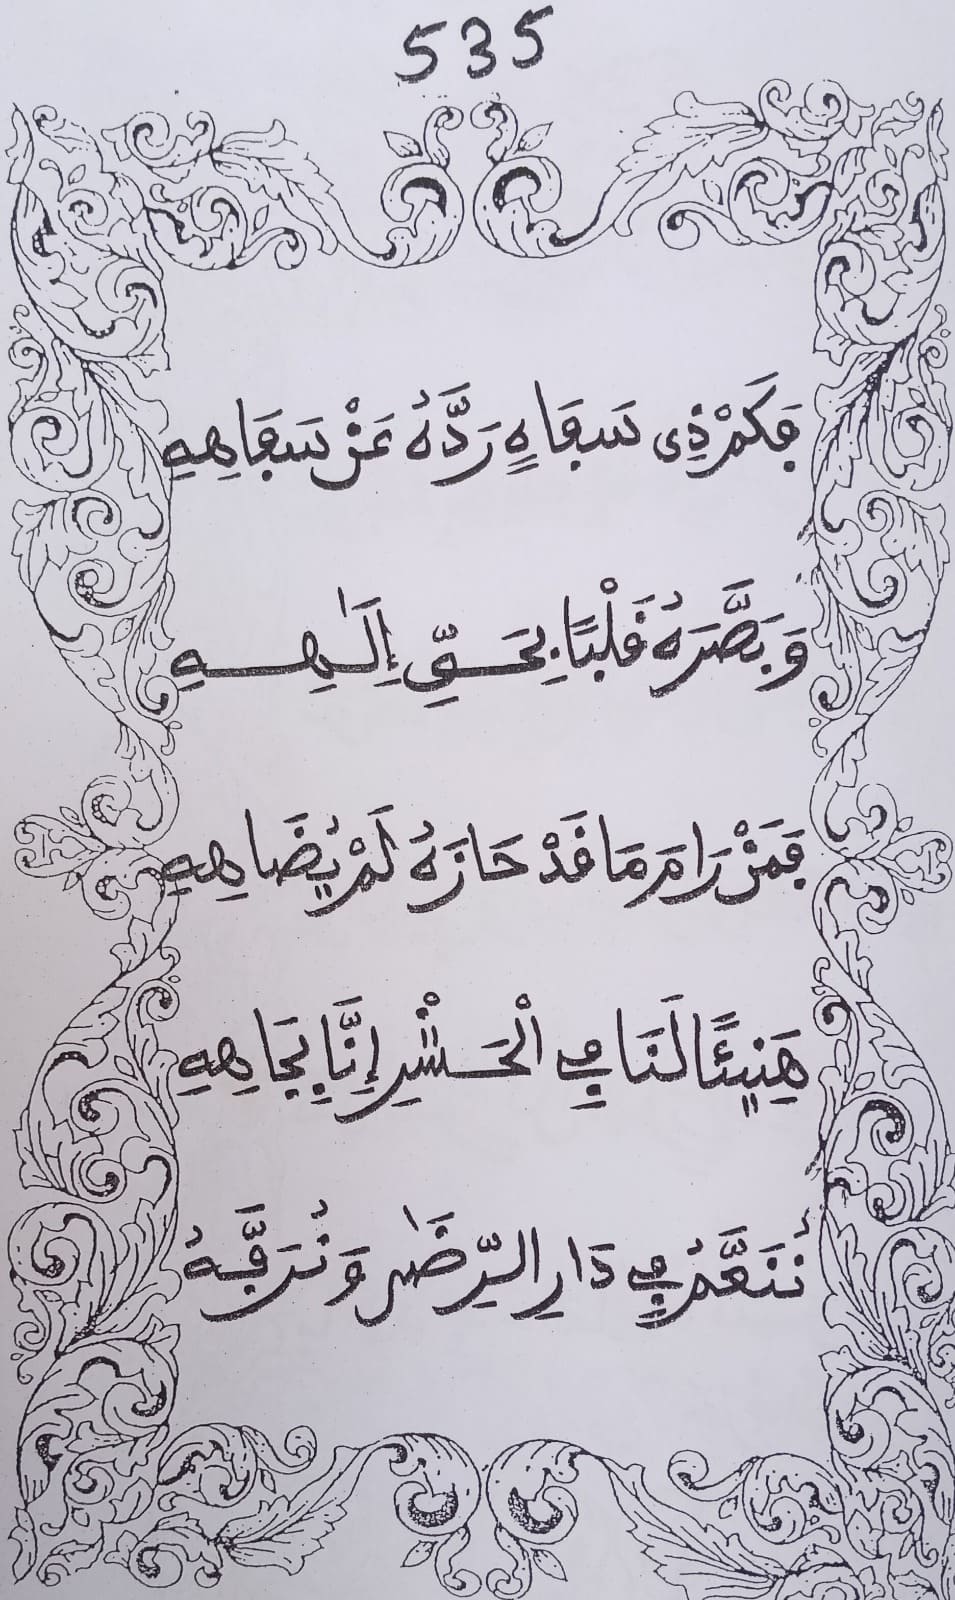 535
فَكَمْ ذِي سَفَاهٍ رَدَّهُ عَنْ سَفَاهِهِ
وَبَصَّرَهُ قَلْبًا بِحَقِّ إِلَٰهِهِ
فَمَنْ رَامَ مَا قَدْ حَازَهُ لَمْ يُضَاهِهِ
هَنِيئًا لَنَا فِي الْحَشْرِ إِنَّا بِجَاهِهِ
نُنَعَّمُ فِي دَارِ الرِّضَىٰ وَنُرَفَّهُ